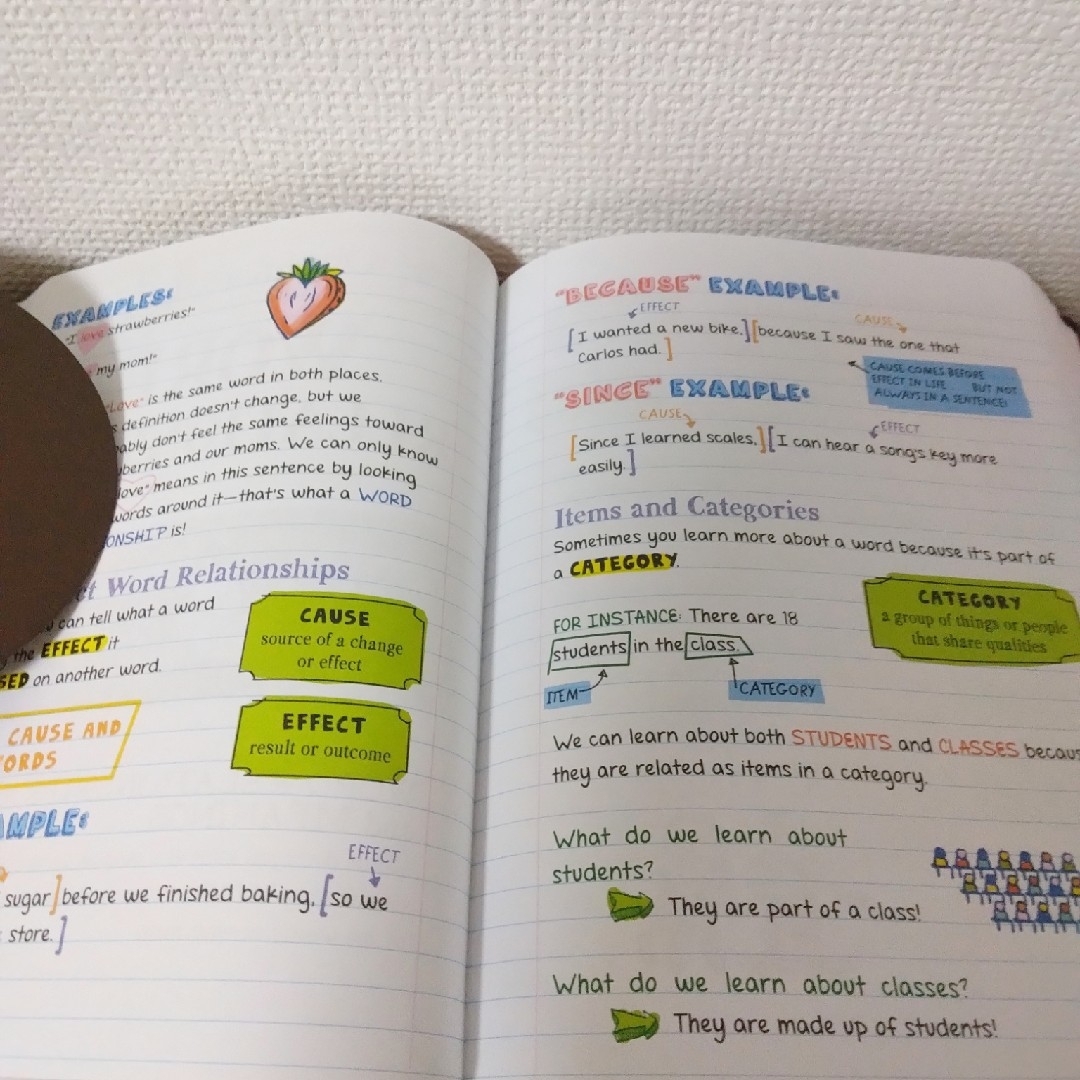 EXAMPLES:
"I love strawberries!"
my mom!"
"Love" is the same word in both places.
definition doesn't change, but we
don't feel the same feelings toward
and our moms. We can only know
love" means in this sentence by looking
words around it—that's what a WORD
is!
Word Relationships
can tell what a word
the EFFECT it
on another word.
CAUSE
source of a change
or effect
CAUSE AND
EFFECT
result or outcome
EFFECT
sugar] before we finished baking, [so we
store.]
"BECAUSE" EXAMPLE:
EFFECT
CAUSE
[I wanted a new bike,] [because I saw the one that
Carlos had.]
CAUSE COMES BEFORE
EFFECT IN LIFE BUT NOT
ALWAYS IN A SENTENCE!
"SINCE" EXAMPLE:
CAUSE
EFFECT
[Since I learned scales,] [I can hear a song's key more
easily.]
Items and Categories
Sometimes you learn more about a word because it's part of
a CATEGORY.
CATEGORY
a group of things or people
that share qualities
FOR INSTANCE: There are 18
students in the class.
ITEM
CATEGORY
We can learn about both STUDENTS and CLASSES
they are related as items in a category.
What do we learn about
students?
They are part of a class!
What do we learn about classes?
They are made up of students!